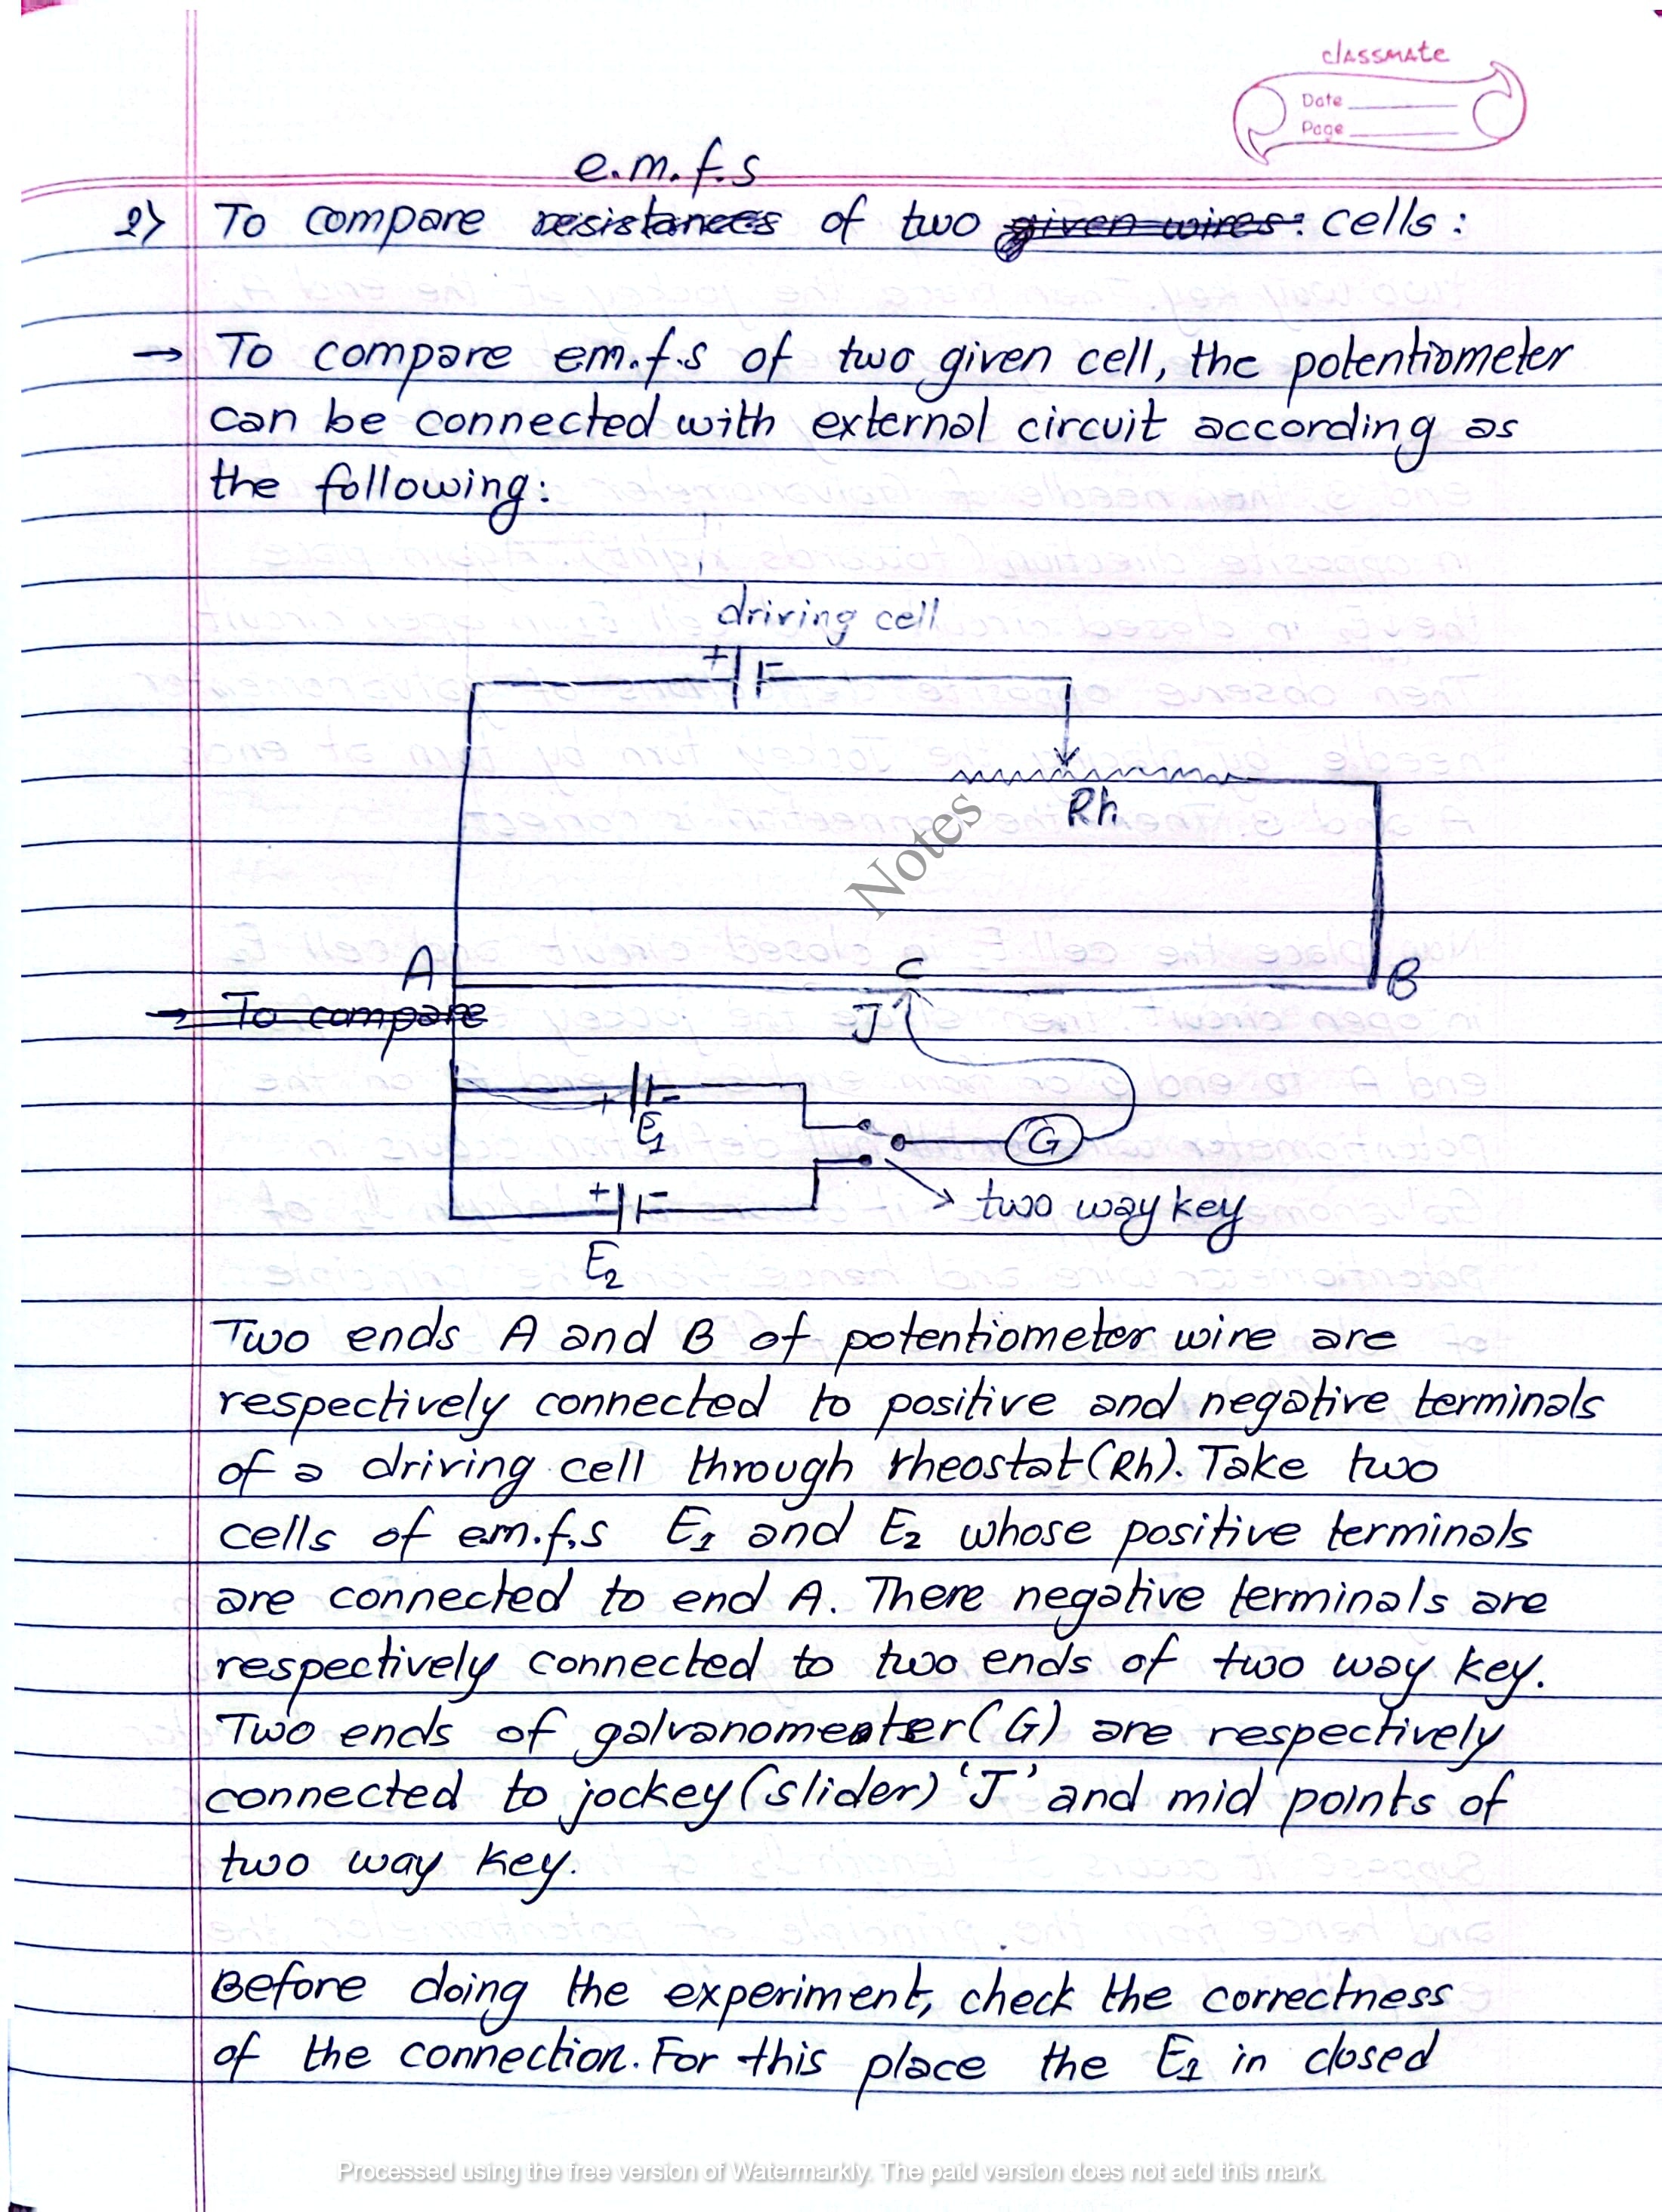 classmate
Date
Page
e.m.f.s
2) To compare resistances of two given wires: cells:
→ To compare em.f.s of two given cell, the potentiometer
can be connected with external circuit according as
the following:
driving cell
+ -
Rh
Notes
A C B
→ To compare
J
+ -
E1
G
+ -
two way key
E2
Two ends A and B of potentiometer wire are
respectively connected to positive and negative terminals
of a driving cell through rheostat (Rh). Take two
cells of em.f.s E1 and E2 whose positive terminals
are connected to end A. There negative terminals are
respectively connected to two ends of two way key.
Two ends of galvanometer (G) are respectively
connected to jockey (slider) 'J' and mid points of
two way key.
Before doing the experiment, check the correctness
of the connection. For this place the E1 in closed
Processed using the free version of Watermarkly. The paid version does not add this mark.